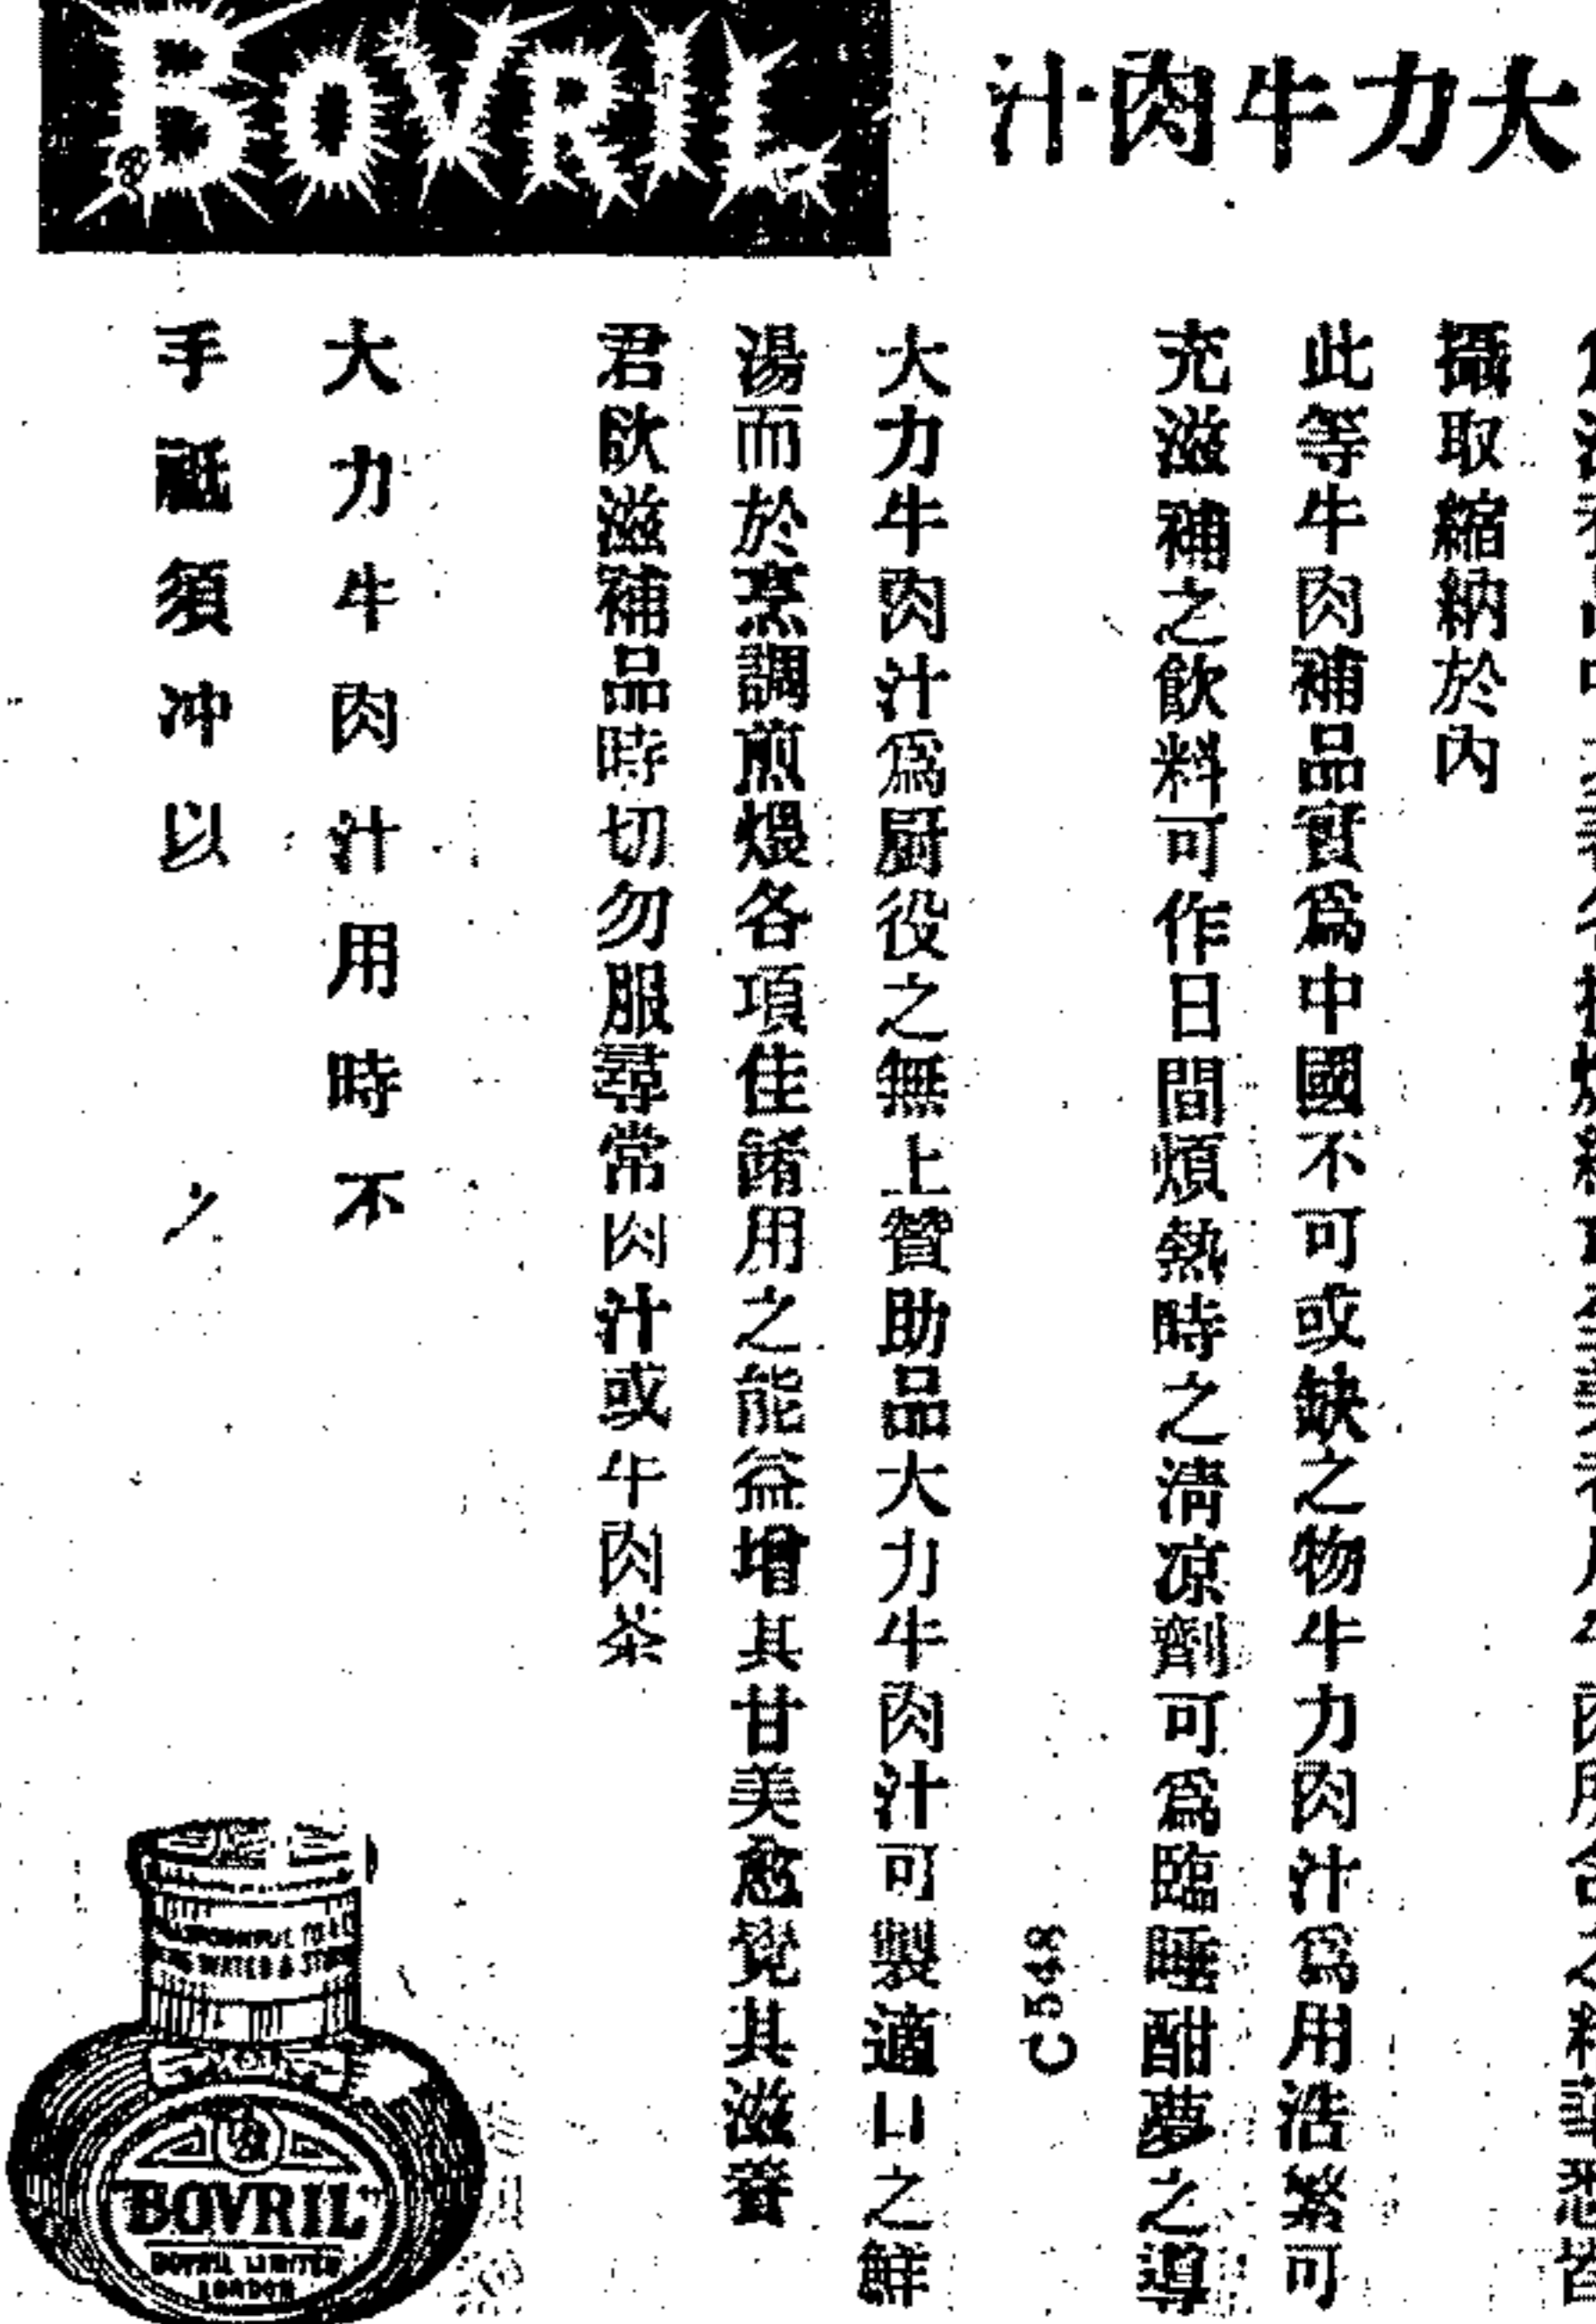 大力牛肉汁
BOVRIL
攝取縮納於內
此等牛肉補品實爲中國不可或缺之物牛力肉汁爲用浩繁可
充滋補之飲料可作日間煩熱時之清凉劑可爲臨睡酣夢之導
C 548
大力牛肉汁爲厨役之無上贊助品大力牛肉汁可製適口之鮮
湯而於烹調煎煨各項佳餚用之能益增其甘美愈覺其滋養
君飲滋補品時切勿服尋常肉汁或牛肉茶
大力牛肉汁用時不
手 須冲以
BOVRIL
BOVRIL LIMITED
LONDON